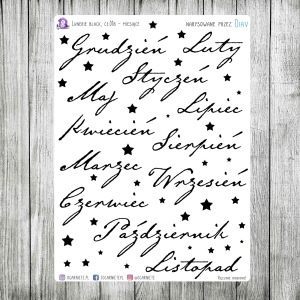 Lunerie black, cl086 - miesiące narysowane przez
Grudzień Luty
Styczeń
Maj
Lipiec
Kwiecień
Sierpień
Marzec
Wrzesień
Czerwiec
Październik
Listopad